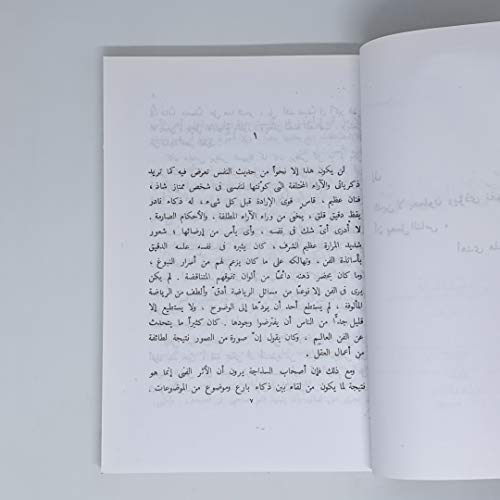 ١
لن يكون هذا إلا نحواً من حديث النفس تعرض فيه كما تريد
ذكرياتى والآراء المختلفة التى كونتها لنفسى فى شخص ممتاز شاذ،
فنان عظيم، قاس قوى الإرادة قبل كل شىء، له ذكاء نادر
يقظ دقيق قلق، يُخفى من وراء الآراء المطلقة، والأحكام الصارمة.
لا أدرى أىّ شك فى نفسه، وأى يأس من إرضائها؛ شعور
شديد المرارة عظيم الشرف، كان يثيره فى نفسه علمه الدقيق
بأساتذة الفن، وتهالكه على ما كان يزعم لهم من أسرار النبوغ،
وما كان يحضر ذهنه دائماً من ألوان تفوقهم المتناقضة. لم يكن
يرى فى الفن إلا نوعاً من مسائل الرياضة أدقّ وألطف من الرياضة
المألوفة، لم يستطع أحد أن يردّها إلى الوضوح، ولا يستطيع إلا
قليل جداً من الناس أن يفترضوا وجودها. كان كثيراً ما يتحدث
عن الفن العالم، وكان يقول إن صورة من الصور نتيجة لطائفة
من أعمال العقل.
ومع ذلك فإن أصحاب السذاجة يرون أن الأثر الفنى إنما هو
نتيجة لما يكون من لقاء بين ذكاء بارع وموضوع من الموضوعات.
٧